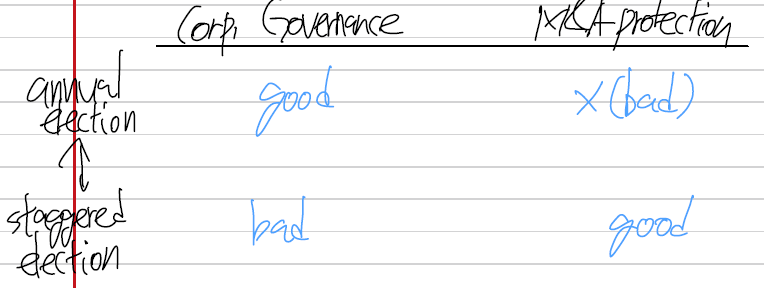 Corp. Governance M&A protection
annual election good X (bad)
staggered election bad good